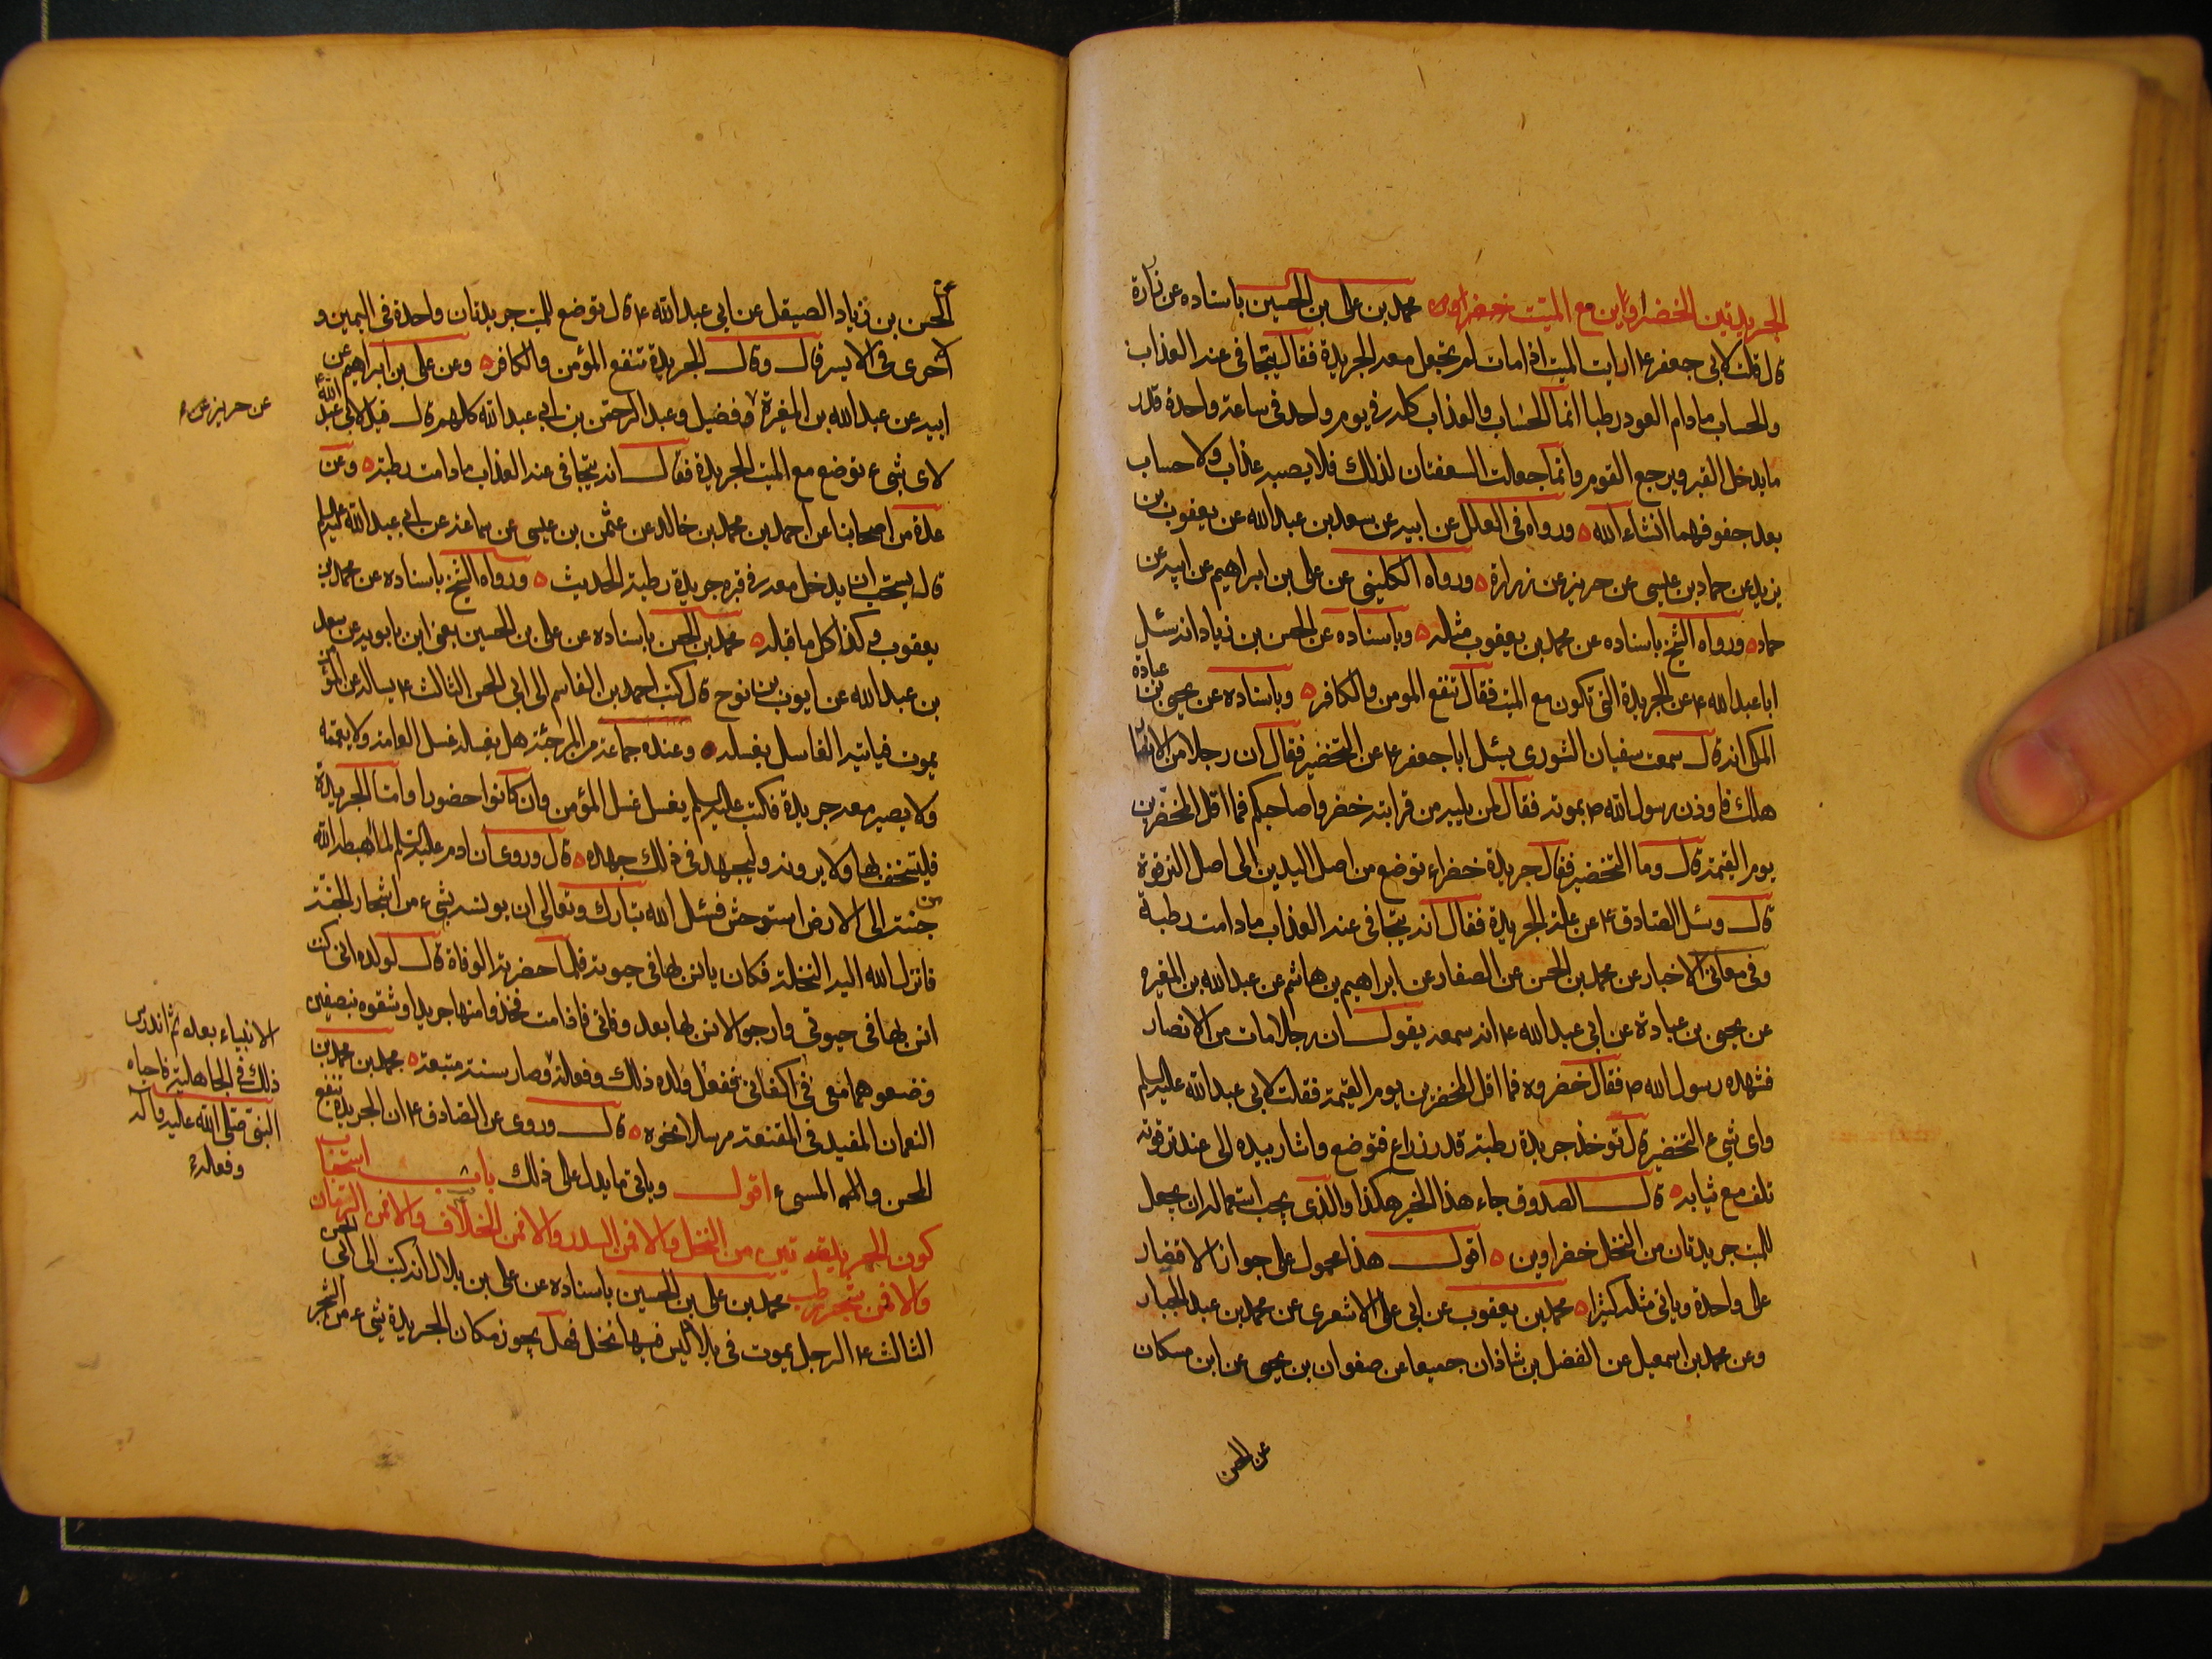 الجريدتين الخضراوين مع الميت محمد بن علي بن الحسين باسناده عن زرارة
قال قلت لابي جعفر ع ارايت الميت اذا مات لم تجعل معه الجريدة فقال يتجافى عند العذاب
والحساب ما دام العود رطبا انما الحساب والعذاب كله في يوم واحد في ساعة واحدة قدر
ما يدخل القبر ويرجع القوم وانما جعلت السعفتان لذلك فلا يصيبه عذاب ولا حساب
بعد جفوفهما انشاء الله ورواه في العلل عن ابيه عن سعد بن عبد الله عن يعقوب بن
يزيد عن حماد بن عيسى عن حريز عن زرارة ورواه الكليني عن علي بن ابراهيم عن ابيه عن
حماد ورواه الشيخ باسناده عن محمد بن يعقوب مثله وباسناده عن الحسن بن زياد انه سئل
ابا عبد الله ع عن الجريدة التي تكون مع الميت فقال تنفع المومن والكافر وباسناده عن يحيى بن عبادة
المكي انه قال سمعت سفيان الثوري يسئل ابا جعفر ع عن التخضير فقال ان رجلا من الانصار
هلك فاوذن رسول الله ص بموته فقال لمن يليه من قرابته خضروا صاحبكم فما اقل المخضرين
يوم القيمة قال وما التخضير فقال جريدة خضراء توضع من اصل اليدين الى اصل الترقوة
قال وسئل الصادق ع عن علة الجريدة فقال انه يتجافى عند العذاب ما دامت رطبة
وفي معاني الاخبار عن محمد بن الحسن عن الصفار عن ابراهيم بن هاشم عن عبد الله بن المغيره
عن يحيى بن عبادة عن ابي عبد الله ع انه سمعه يقول ان رجلا مات من الانصار
فشهده رسول الله ص فقال خضروه فما اقل المخضرين يوم القيمة فقلت لابي عبد الله عليه السلم
واي شيء التخضير قال توخذ جريدة رطبة قدر ذراع فتوضع واشار بيده الى عند ترقوته
تلف مع ثيابه قال الصدوق جاء هذا الخبر هكذا والذي يجب استعماله ان يجعل
للميت جريدتان من النخل خضراوين اقول هذا محمول على جواز الاقتصار
على واحدة وياتي مثله كثيرا محمد بن يعقوب عن ابي علي الاشعري عن محمد بن عبد الجبار
وعن محمد بن اسمعيل عن الفضل بن شاذان جميعا عن صفوان بن يحيى عن ابن مسكان
عن الحسن
عن الحسن بن زياد الصيقل عن ابي عبد الله ع قال توضع للميت جريدتان واحدة في اليمين و
الاخرى في الايسر قال وقال الجريدة تنفع المؤمن والكافر وعن علي بن ابراهيم عن
ابيه عن عبد الله بن المغيرة و فضيل وعبد الرحمن بن ابي عبد الله كلهم قال قيل لابي عبد الله ع
عن حريز عن
لاي شيء توضع مع الميت الجريدة فقال انه يتجافى عند العذاب ما دامت رطبة وعن
عدة من اصحابنا عن احمد بن محمد بن خالد عن عثمن بن عيسى عن سماعة عن ابي عبد الله عليه السلم
قال يستحب ان يدخل معه في قبره جريدة رطبة الحديث ورواه الشيخ باسناده عن محمد بن
يعقوب وكذا كل ما قبله محمد بن الحسن باسناده عن علي بن الحسين يعني ابن بابويه عن سعد
بن عبد الله عن ايوب بن نوح قال كتب احمد بن القاسم الى ابي الحسن الثالث ع يساله عن المؤمن
يموت فياتيه الغاسل يغسله وعنده جماعة من المرجئة هل يغسله غسل العامة ولا يعممه
ولا يصير معه جريدة فكتب عليه السلم يغسل غسل المؤمن وان كانوا حضورا واما الجريدة
فليستخف بها ولا يرونه وليجهد في ذلك جهده قال وروي ان ادم عليه السلم لما اهبطه الله
من جنته الى الارض استوحش فسئل الله تبارك وتعالى ان يونسه بشيء من اشجار الجنة
فانزل الله اليه النخلة فكان يانس بها في حيوته فلما حضرته الوفاة قال لولده اني كنت
انس بها في حيوتي وارجو الانس بها بعد وفاتي فاذا مت فخذوا منها جريدا وشقوه بنصفين
وضعوهما معي في اكفاني ففعل ولده ذلك وفعلته وصار سنة متبعة محمد بن محمد بن
الانبياء بعده ثم اندرس
ذلك في الجاهلية فاحياه
النبي صلى الله عليه واله
وفعله
النعمان المفيد في المقنعة مرسلا نحوه قال وروي عن الصادق ع ان الجريدة تنفع
المحسن والمسيء اقول وياتي ما يدل على ذلك باب استحباب
كون الجريدتين من النخل والا فمن السدر والا فمن الخلاف والا فمن الرمان
والا فمن شجر رطب محمد بن علي بن الحسين باسناده عن علي بن بلال انه كتب الى ابي الحسن
الثالث ع الرجل يموت في بلاد ليس فيها نخل فهل يجوز مكان الجريدة شيء من الشجر